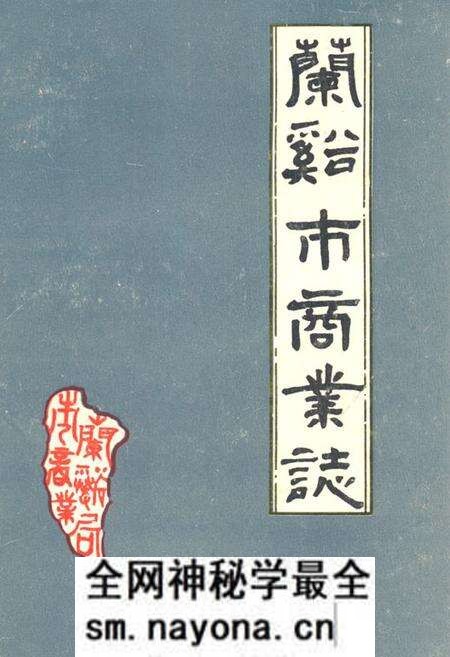 蘭谿市商業誌
蘭谿
市商業
全网神秘学最全
sm.nayona.cn